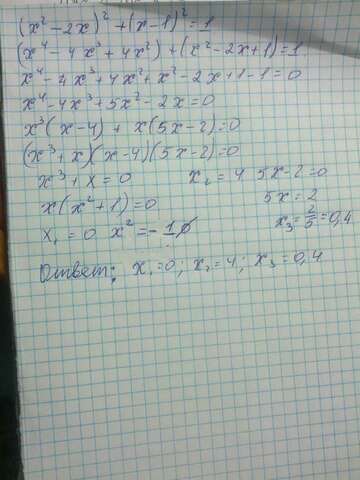 (x² - 2x)² + (x - 1)² = 1
(x⁴ - 4x³ + 4x²) + (x² - 2x + 1) = 1
x⁴ - 4x³ + 4x² + x² - 2x + 1 - 1 = 0
x⁴ - 4x³ + 5x² - 2x = 0
x³(x - 4) + x(5x - 2) = 0
(x³ + x)(x - 4)(5x - 2) = 0
x³ + x = 0 x₂ = 4 5x - 2 = 0
x(x² + 1) = 0 5x = 2
x₁ = 0 x² = - 1 x₃ = 2/5 = 0,4
Ответ: x₁ = 0; x₂ = 4; x₃ = 0,4